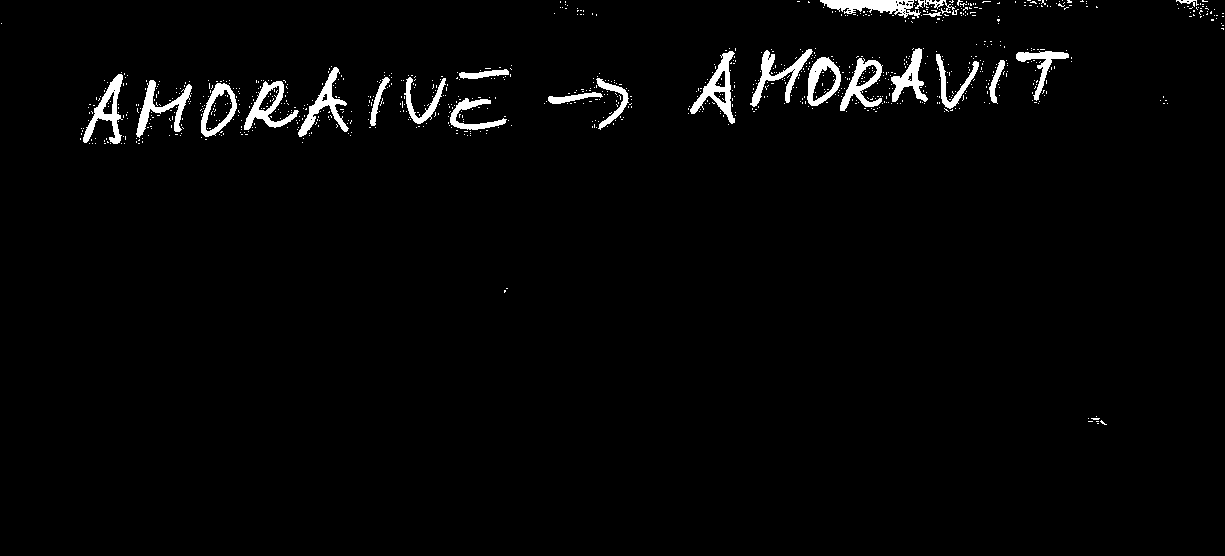 AMORAIVE → AMORAVIT